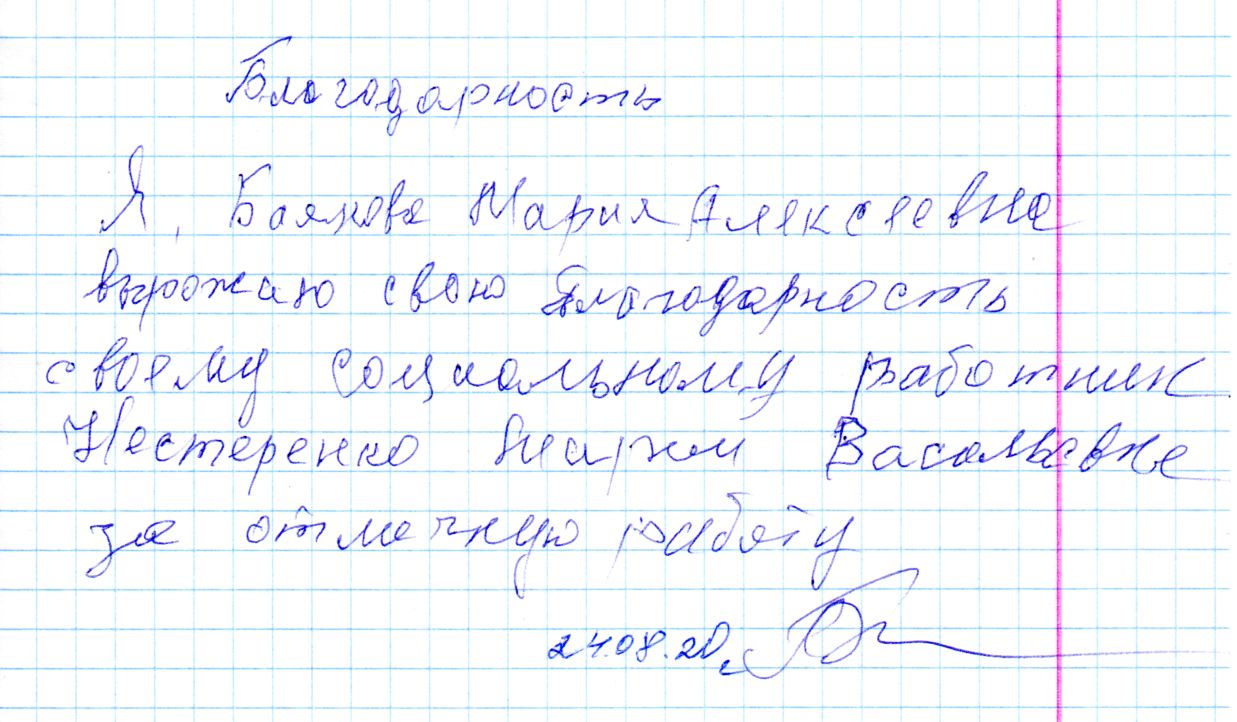 Благодарность
Я, Баянова Мария Алексеевна
выражаю свою благодарность
своему социальному работник
Нестеренко Марии Васильевне
за отличную работу
24.08.20г